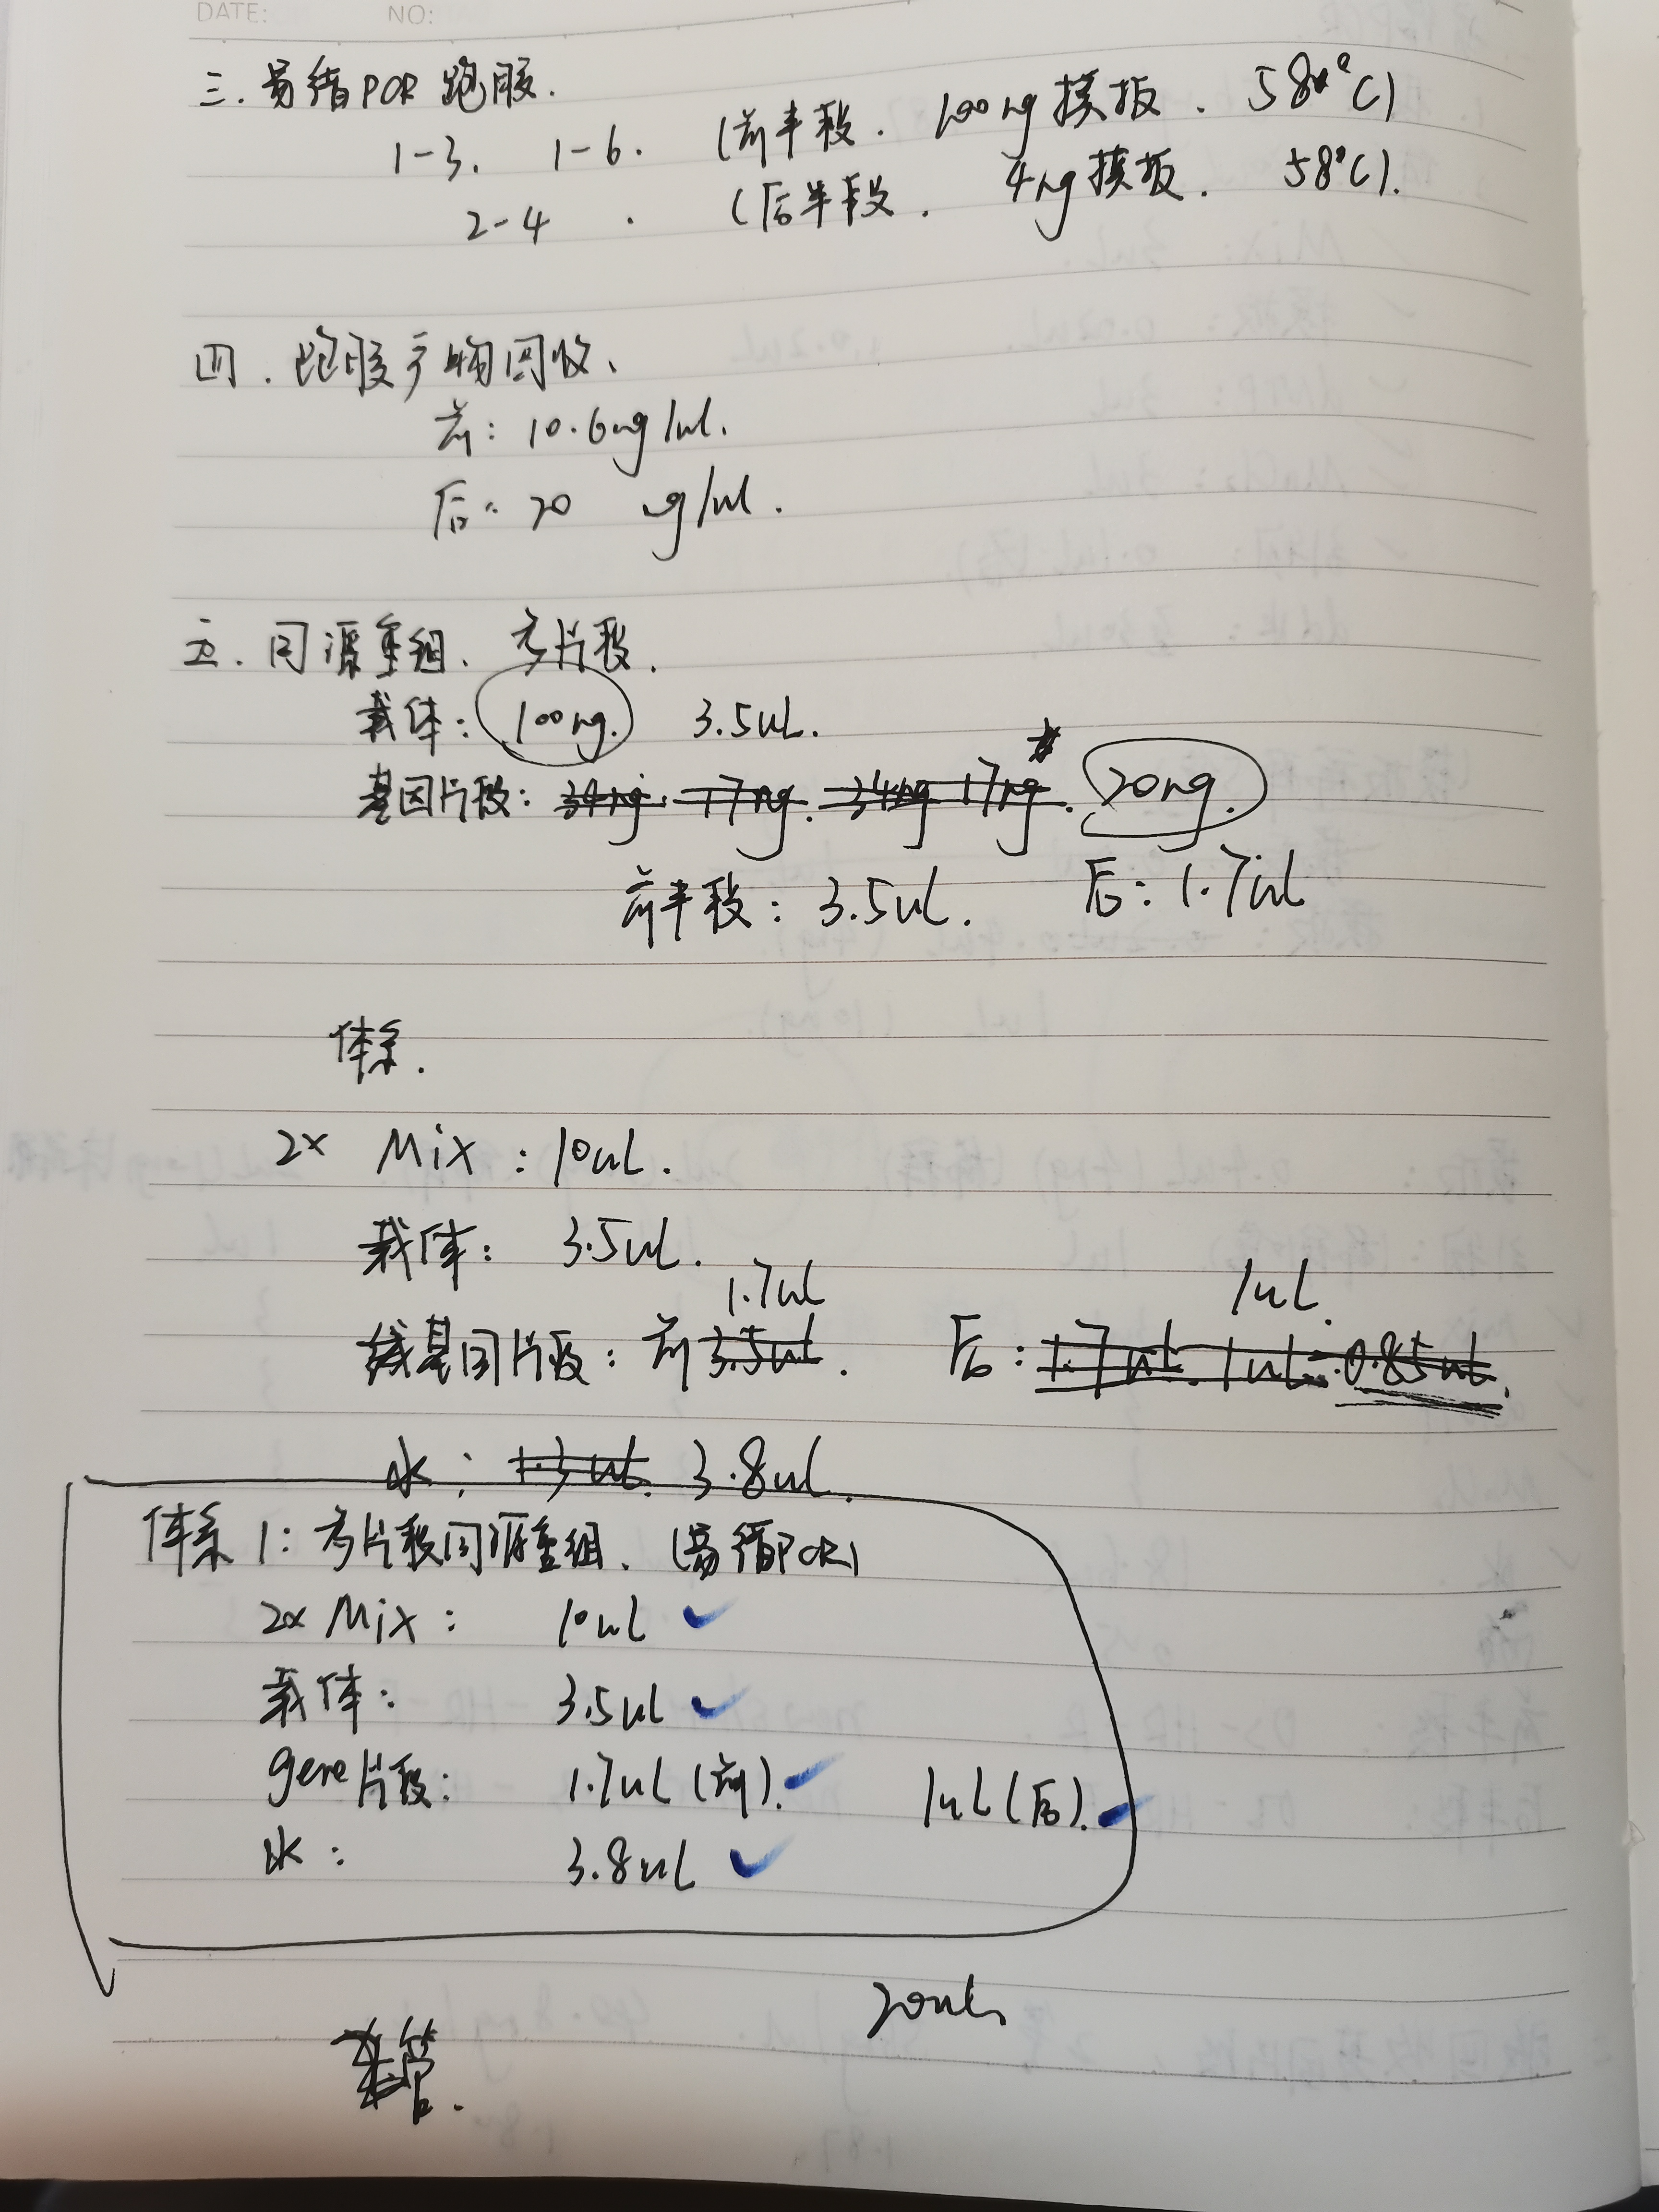 DATE: NO:
三.易错PCR 跑胶.
1-3. 1-6. (前半段. 100ng模板. 58°C)
2-4 . (后半段. 4ng模板. 58°C).
四.跑胶产物回收、
前: 10.6ng/ul.
后: 20 ng/ul.
五.同源重组、多片段.
载体: 100ng. 3.5uL.
基因片段: 34ng. 17ng. 34ng 17ng. 20ng.
前半段: 3.5uL. 后: 1.7uL
体系.
2x Mix: 10uL.
载体: 3.5uL.
1.7uL 1uL.
基因片段: 前 3.5uL. 后: 1.7uL. 1uL 0.85uL.
水: 1.3uL. 3.8uL.
体系1: 多片段同源重组、(易错PCR)
2x Mix: 10uL
载体: 3.5uL
gene片段: 1.7uL(前). 1uL(后).
水: 3.8uL
20uL